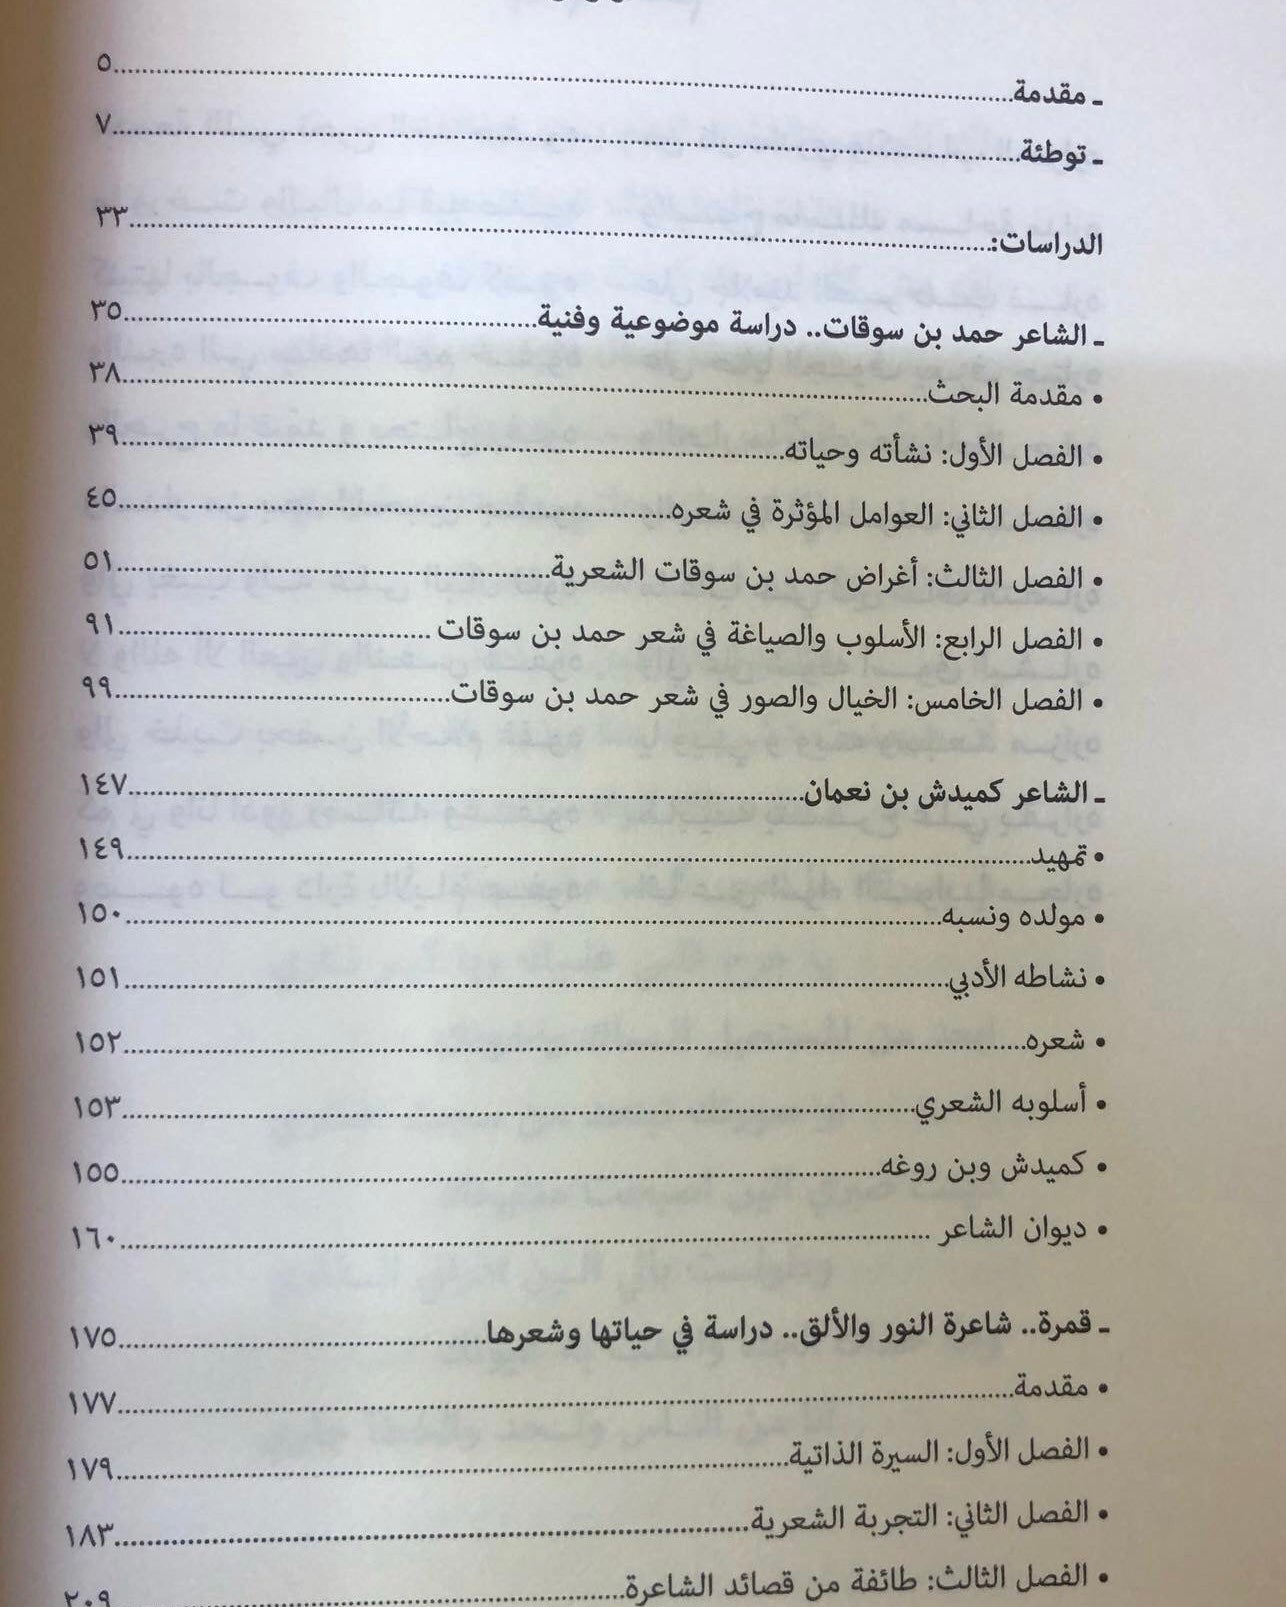 ـ مقدمة..........٥
ـ توطئة..........٧
الدراسات:..........٣٣
ـ الشاعر حمد بن سوقات.. دراسة موضوعية وفنية..........٣٥
• مقدمة البحث..........٣٨
• الفصل الأول: نشأته وحياته..........٣٩
• الفصل الثاني: العوامل المؤثرة في شعره..........٤٥
• الفصل الثالث: أغراض حمد بن سوقات الشعرية..........٥١
• الفصل الرابع: الأسلوب والصياغة في شعر حمد بن سوقات ..........٩١
• الفصل الخامس: الخيال والصور في شعر حمد بن سوقات..........٩٩
ـ الشاعر كميدش بن نعمان..........١٤٧
• تمهيد..........١٤٩
• مولده ونسبه..........١٥٠
• نشاطه الأدبي..........١٥١
• شعره..........١٥٢
• أسلوبه الشعري..........١٥٣
• كميدش وبن روغه..........١٥٥
• ديوان الشاعر ..........١٦٠
ـ قمرة.. شاعرة النور والألق.. دراسة في حياتها وشعرها..........١٧٥
• مقدمة..........١٧٧
• الفصل الأول: السيرة الذاتية..........١٧٩
• الفصل الثاني: التجربة الشعرية..........١٨٣
• الفصل الثالث: طائفة من قصائد الشاعرة..........٢٠٩